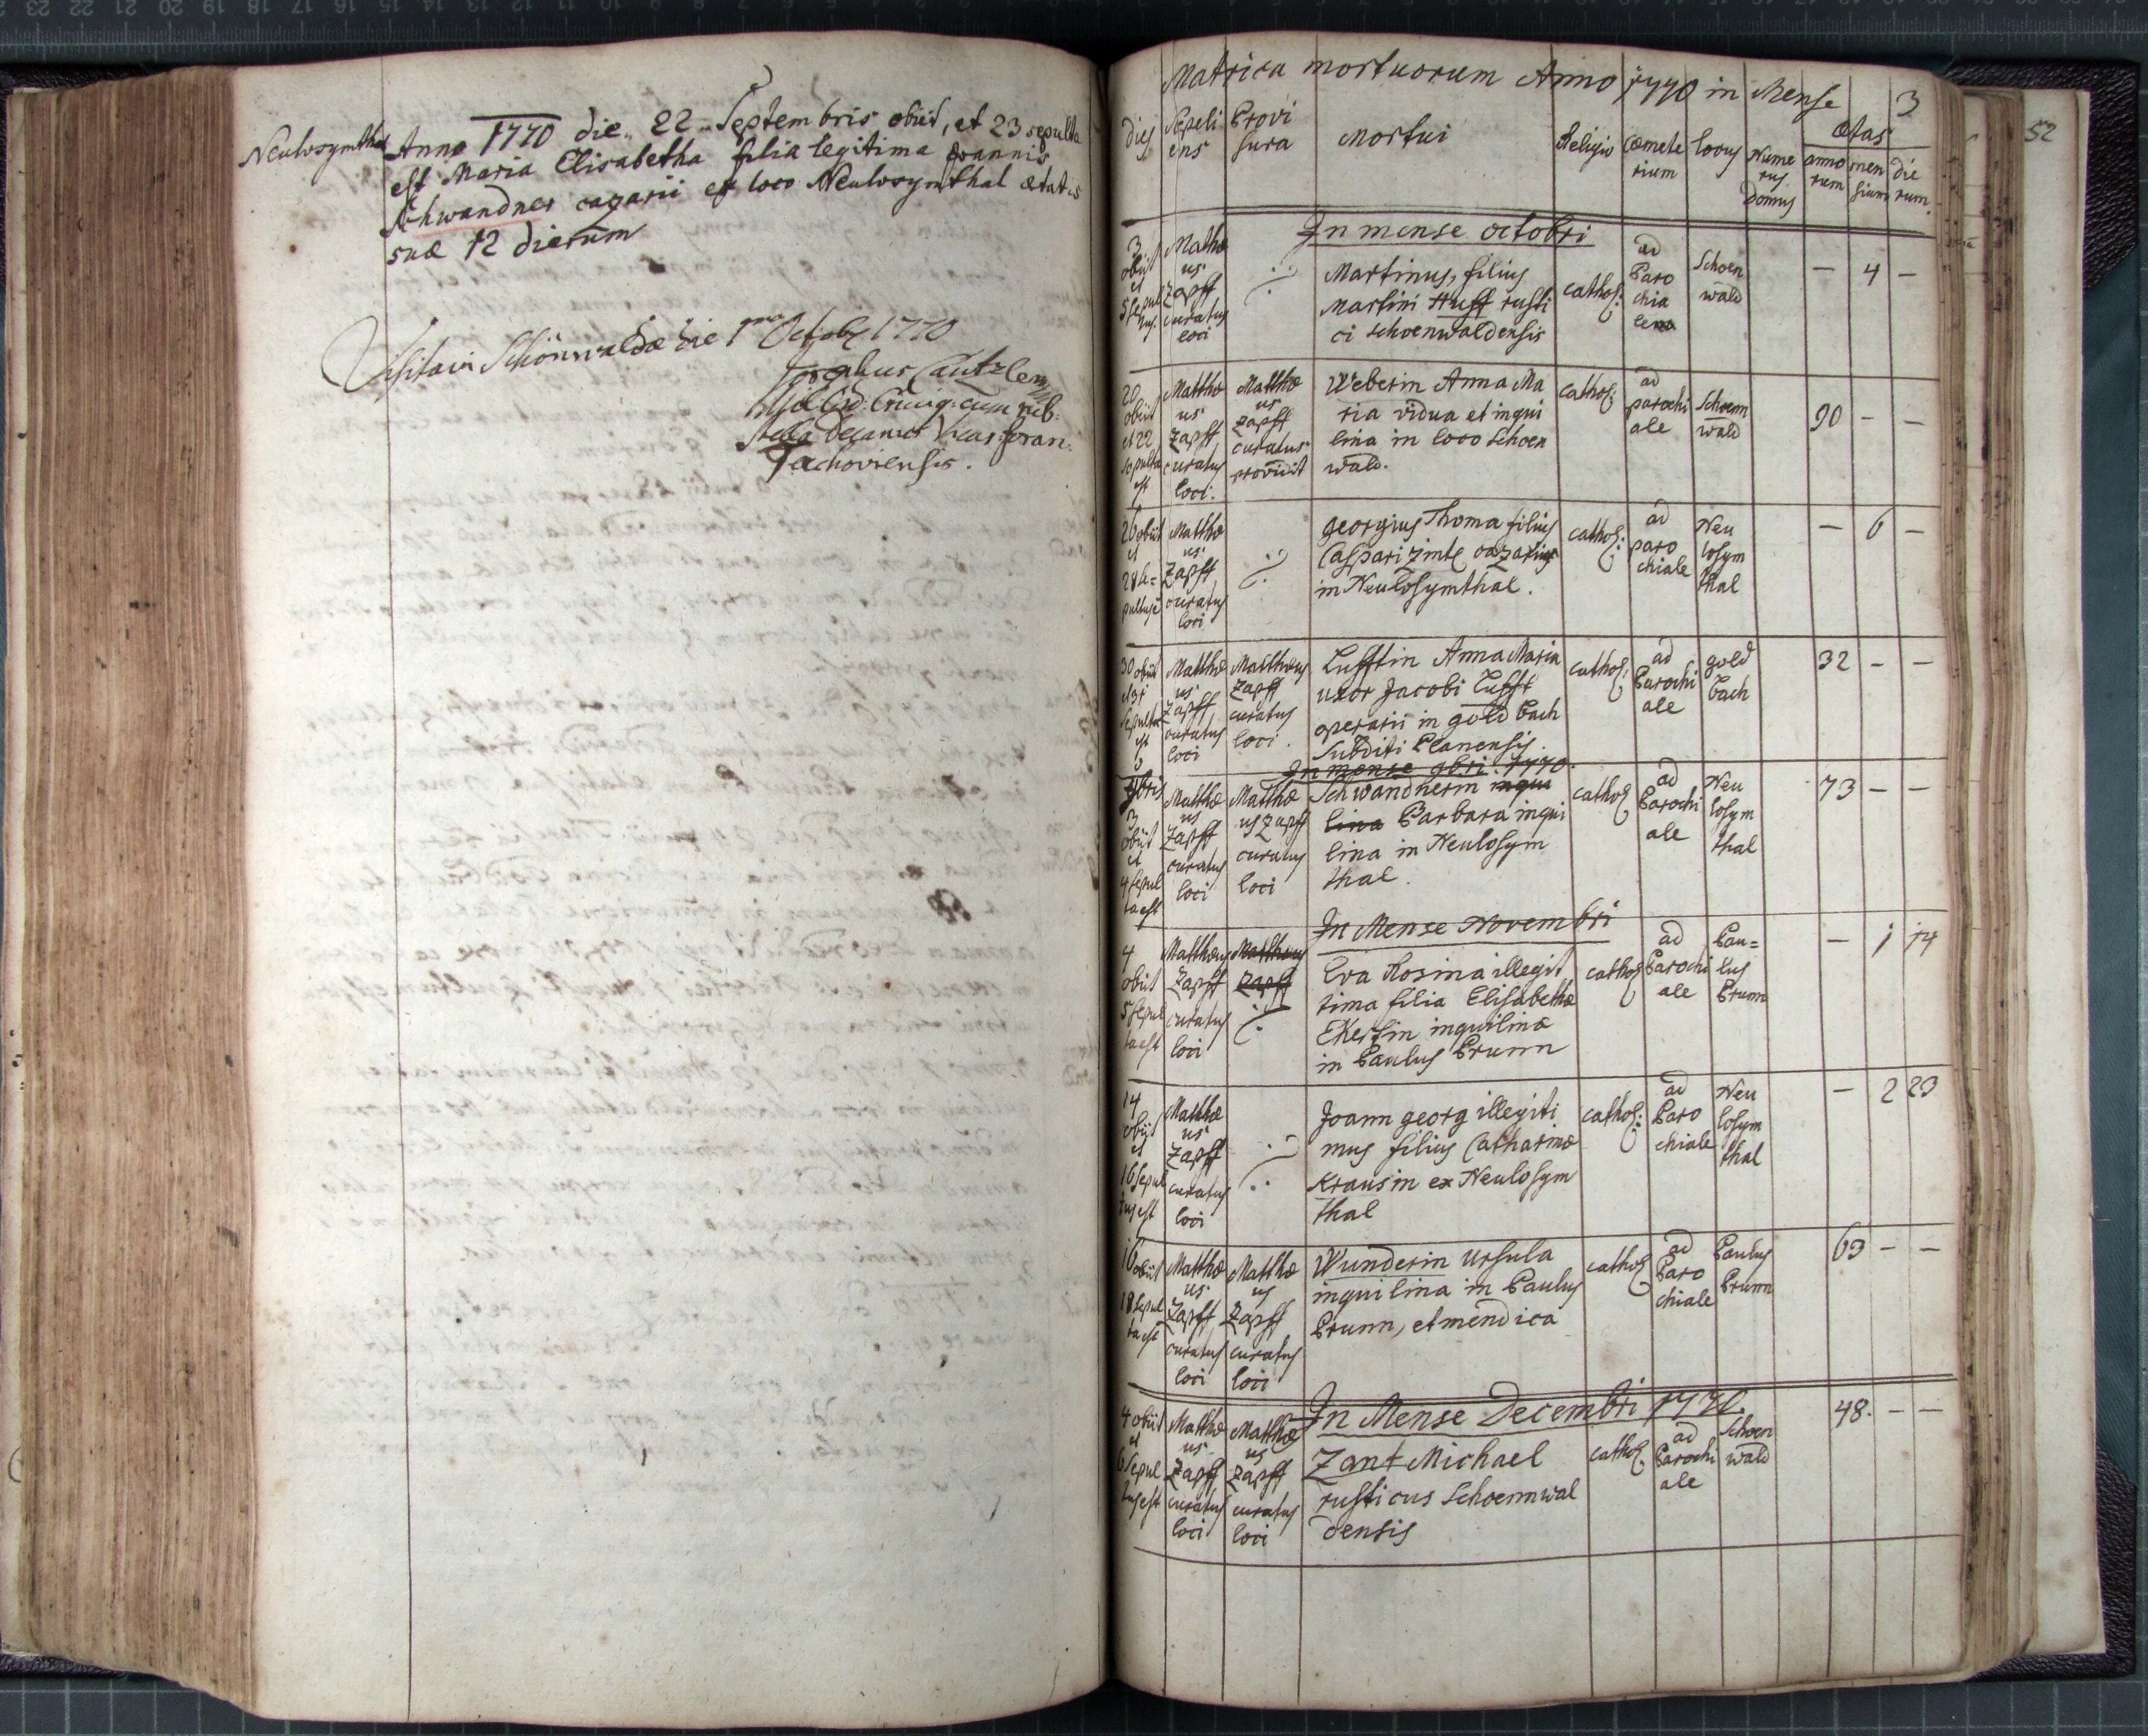 Neulosymthal
Anno 1770 die 22 Septembris obiit, et 23 sepulta
est Maria Elisabetha filia legitima Joannis
Schwandner cazarii ex loco Neulosymthal ætatis
suæ 12 dierum
Visitavi Schönwaldæ die 1ma Octobr 1770
Josephus
Decanus Vicar: foran:
Tachoviensis.
52
Matrica mortuorum Anno 1770 in Mense
3
dies
Sepeli
ens
Provi
sura
Mortui
Religio
Cæmete
rium
locus
Nume
rus
Domus
ætas
anno
rum
men
sium
die
rum.
In mense octobri
3
obiit
et
5 sepul
tus.
Mathæ
us
Zapff
curatus
loci
Martinus, filius
Martini Huff rusti
ci schoenwaldensis
cathol:
ad
Paro
chia
le
Schoen
wald
— 4 —
20
obiit
et 22
sepulta
est
Matthæ
us
Zapff
curatus
loci.
Matthæ
us
Zapff
curatus
providit
Weberin Anna Ma
ria vidua et inqui
lina in loco Schoen
wald.
cathol:
ad
parochi
ale
Schoen
wald
90 - —
26 obiit
et
28 se=
pultus ē
Matthæ
us
Zapff
curatus
loci
georgius Thoma filius
Caspari Zintl cazarius
in Neulosymthal.
cathol:
ad
paro
chiale
Neu
losym
thal
— 6 —
30 obiit
et 31
sepulta
est
Matthæ
us
Zapff
curatus
loci
Matthæus
Zapff
curatus
loci.
Lufftin Anna Maria
uxor Jacobi Lufft
operarii in gold bach
Subditi Planensis.
cathol:
ad
Parochi
ale
gold
bach
32 - —
In mense 9bri 1770
9bris
3
obiit
et
4 sepul
ta est
Matthæ
us
Zapff
curatus
loci
Matthæ
us Zapff
curatus
loci
Schwandnerin inqui
lina Barbara inqui
lina in Neulosym
thal.
cathol
ad
Parochi
ale
Neu
losym
thal
73 — —
In Mense Novembri
4
obiit
5 sepul
ta est
Matthæus
Zapff
curatus
loci
Matthæus
Zapff
Eva Rosina illegit
tima filia Elisabethæ
Ekerlin inquilinæ
in Paulus Brunn
cathol
ad
Parochi
ale
Pau=
lus
Brunn
— 1 14
14
obiit
et
16 sepul
tus est
Matthæ
us
Zapff
curatus
loci
Joann georg illegiti
mus filius Catharinæ
Krausin ex Neulosym
thal
cathol:
ad
Paro
chiale
Neu
losym
thal
— 2 23
16 obiit
18 sepul
ta est
Matthæ
us
Zapff
curatus
loci
Matthæ
us
Zapff
curatus
loci
Wunderin Ursula
inquilina in Paulus
Brunn, et mendica
cathol
ad
Paro
chiale
Paulus
Brunn
63 - —
In Mense Decembri 1770.
4 obiit
et
6 sepul
tus est
Matthæ
us
Zapff
curatus
loci
Matthæ
us
Zapff
curatus
loci
Zant Michael
rusticus Schoennwal
densis
cathol.
ad
Parochi
ale
Schoen
wald
48. - —